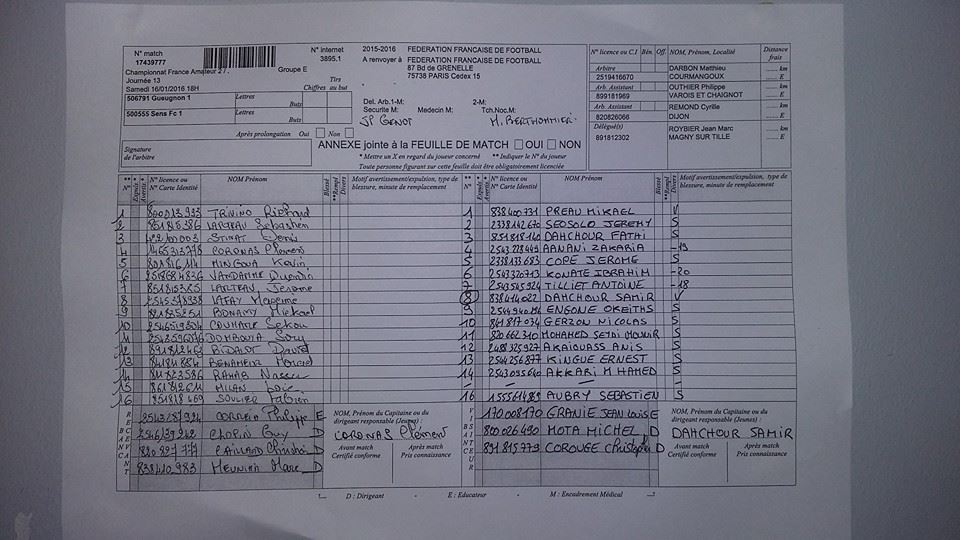 N° match
17439777
N° internet
3895.1
2015-2016 FEDERATION FRANCAISE DE FOOTBALL
A renvoyer à FEDERATION FRANCAISE DE FOOTBALL
87 Bd de GRENELLE
75738 PARIS Cedex 15
Championnat France Amateur 2 /.
Groupe E
Journée 13
Samedi 16/01/2016 18H
Tirs
Chiffres au but
506791 Gueugnon 1 Lettres
Buts
500555 Sens Fc 1 Lettres
Buts
Après prolongation Oui Non
Del. Arb.1-M: 2-M:
Securite M: Medecin M: Tch.Noc.M:
JP GENOT M. BERTHOMMIER
N° licence ou C.I Bén. Off. NOM, Prénom, Localité Distance frais
Arbitre DARBON Matthieu km
2519416670 COURMANGOUX E
Arb. Assistant OUTHIER Philippe km
899181969 VAROIS ET CHAIGNOT E
Arb. Assistant REMOND Cyrille km
820826066 DIJON E
Délégué(s) ROYBIER Jean Marc km
891812302 MAGNY SUR TILLE E
Signature
de l'arbitre
ANNEXE jointe à la FEUILLE DE MATCH OUI NON
* Mettre un X en regard du joueur concerné ** Indiquer le N° du joueur
Toute personne figurant sur cette feuille doit être obligatoirement licenciée
N° Expuls Avertis N° Licence ou N° Carte Identité NOM Prénom Blessé Rempl Divers Motif avertissement/expulsion, type de blessure, minute de remplacement
1 TRIVINO Richard
2 LARTEAU Sebastien
3 STINAT Denis
4 CORONAS Clément
5 MINGOUA Kevin
6 VANDAMME Quentin
7 LARTEAU Jerome
8 LAFAY Maxime
9 BONAMY Mickael
10 Sekou
11 DOMBOUIA Sory
12 BIDAUT David
13 BENAMEUR Morad
14 RAHAB Nasser
15 MILAN Loic
16 851818469 SOULIER Fabien
N° Expuls Avertis N° Licence ou N° Carte Identité NOM Prénom Blessé Rempl Divers Motif avertissement/expulsion, type de blessure, minute de remplacement
1 838400731 PREAU MIKAEL V
2 2338142670 SEOSOLO JEREMY S
3 851818140 DAHCHOUR FATHI S
4 AANANI ZAKARIA -19
5 2338133683 COPE JEROME S
6 2543320713 KONATE IBRAHIM -20
7 2543545924 TILLIET ANTOINE -18
8 838414022 DAHCHOUR SAMIR V
9 ENGONE OKEITHS S
10 841817034 GERZON NICOLAS S
11 820662310 MOHAMED SEYDI MOUNIR S
12 2488325927 AKAIOUASS ANIS S
13 2544256877 KINGUE ERNEST S
14 2543035640 AKKARI M HAMED S
16 AUBRY SEBASTIEN S
RECEVANT
CORREIA Philippe E
CHOPIN Guy D
CAILLAUD D
838410983 MEUNIER Marc D
NOM, Prénom du Capitaine ou du dirigeant responsable (Jeunes) :
CORONAS Clément
Avant match
Certifié conforme
Après match
Pris connaissance
VISITEUR
170008170 GRANIE JEAN LOUIS E
800026490 MOTA MICHEL D
891815773 COROUGE Christophe D
NOM, Prénom du Capitaine ou du dirigeant responsable (Jeunes) :
DAHCHOUR SAMIR
Avant match
Certifié conforme
Après match
Pris connaissance
D : Dirigeant - E : Educateur - M : Encadrement Médical